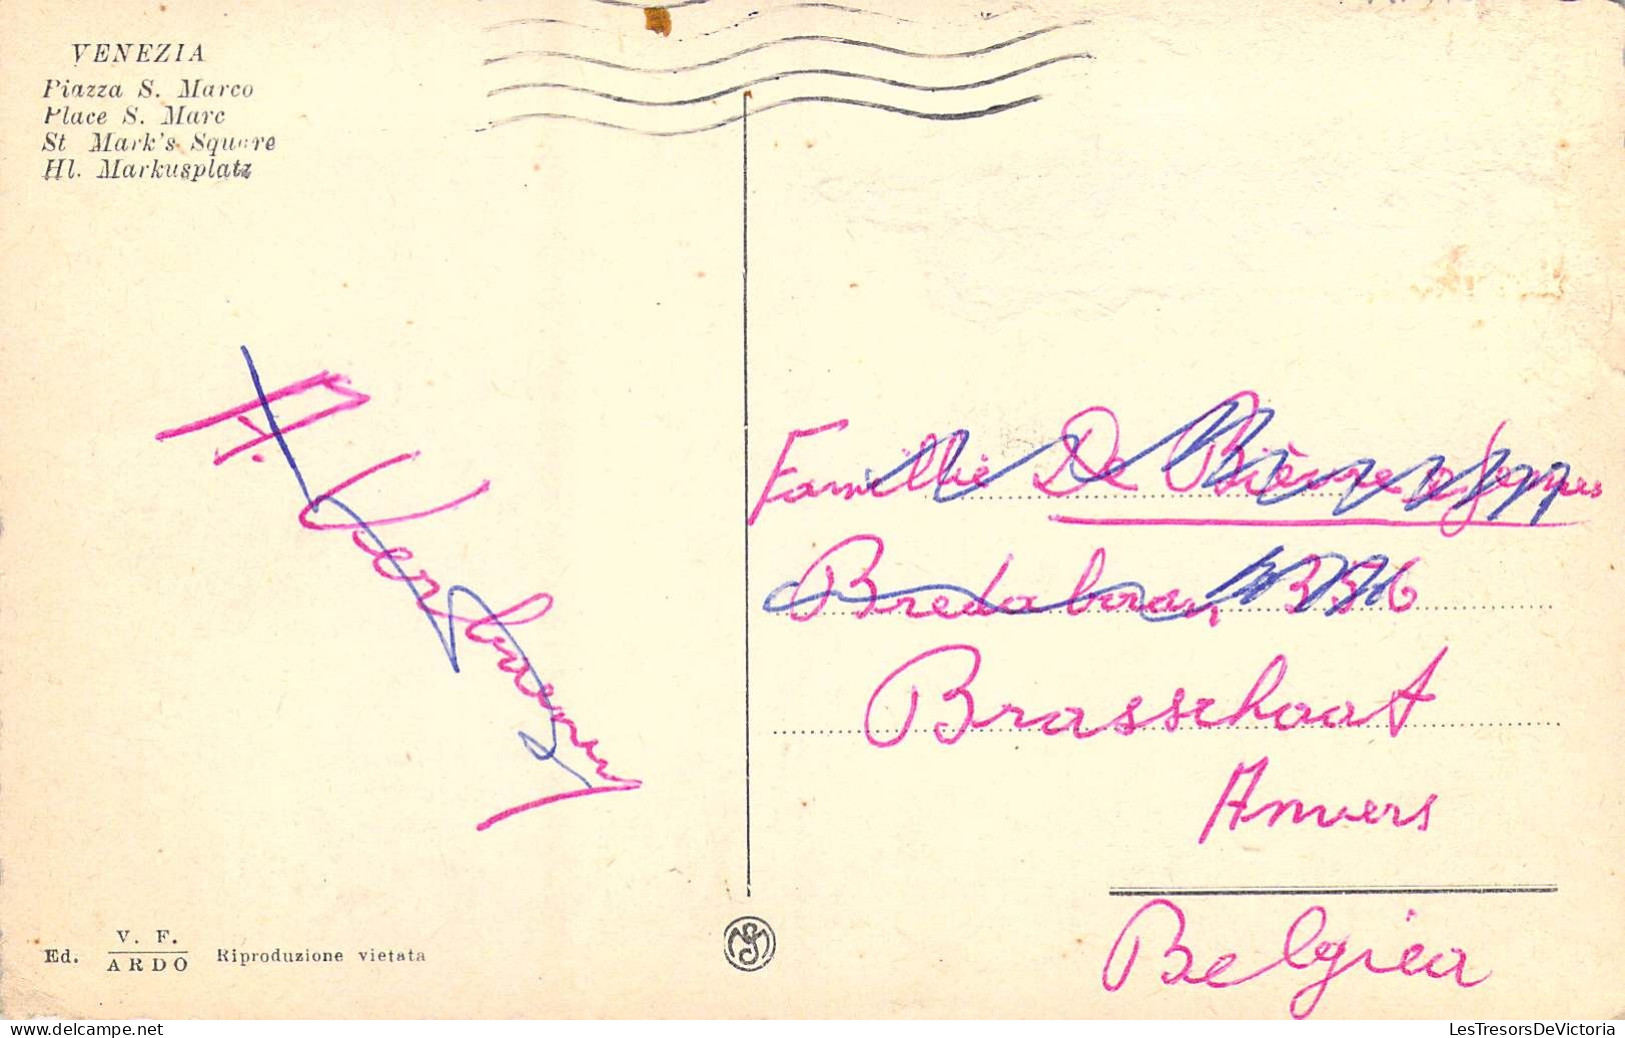 VENEZIA
Piazza S. Marco
Place S. Marc
St Mark's Square
Hl. Markusplatz
Famillie De Bièvre
Bredabaan 336
Brasschaat
Anvers
Belgica
Ed. V. F. ARDO Riproduzione vietata
LesTresorsDeVictoria